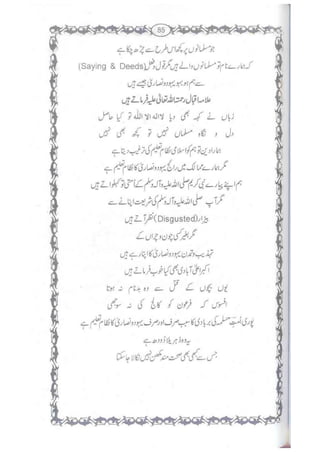 85
جو مسلمانوں پر کچھ اس طرح سے چڑھ چکا ہے
کہ ہمارے نام تو مسلمانوں والے ہیں مگر قول و فعل (Saying & Deeds)
سے ہم ہو بہو یہود و نصاریٰ جیسے ہیں
علامہ اقبال رحمتہ اللہ تعالیٰ علیہ فرماتے ہیں
زباں نے کہہ بھی دیا لا الہ الا اللہ تو کیا حاصل
دل و نگاہ مسلماں نہیں تو کچھ بھی نہیں
ہمارا دین تو ہم کو اسلامی نظام تعلیم کی ترغیب دیتا ہے
مگر ہمارے ممالک میں رائج یہود و نصاریٰ کا نظام تعلیم ہے
ہم اپنے پیارے نبی کریم صلی اللہ علیہ وآلہ وسلم کے امتی تو کہلواتے ہیں
مگر آپ صلی اللہ علیہ وآلہ وسلم کی شریعت اپنانے سے
بیزار (Disgusted) نظر آتے ہیں
مگر بغیر کسی چون و چراں کے
تہذیب و تمدن یہود و نصاریٰ کا اپنا رہے ہیں
اکبر الٰہ آبادی بھی کیا خوب فرماتے ہیں
یوں بچوں کے قتل سے وہ بدنام نہ ہوتا
افسوس کہ فرعون کو کالج کی نہ سوجھی
پوری امت مسلمہ کی بربادی کا سبب صرف اور صرف یہود و نصاریٰ کا نظام تعلیم ہے
یہ وہ زہریلا دودھ ہے
جس سے کبھی بھی صحت مند مکھن نہیں نکالا جا سکتا